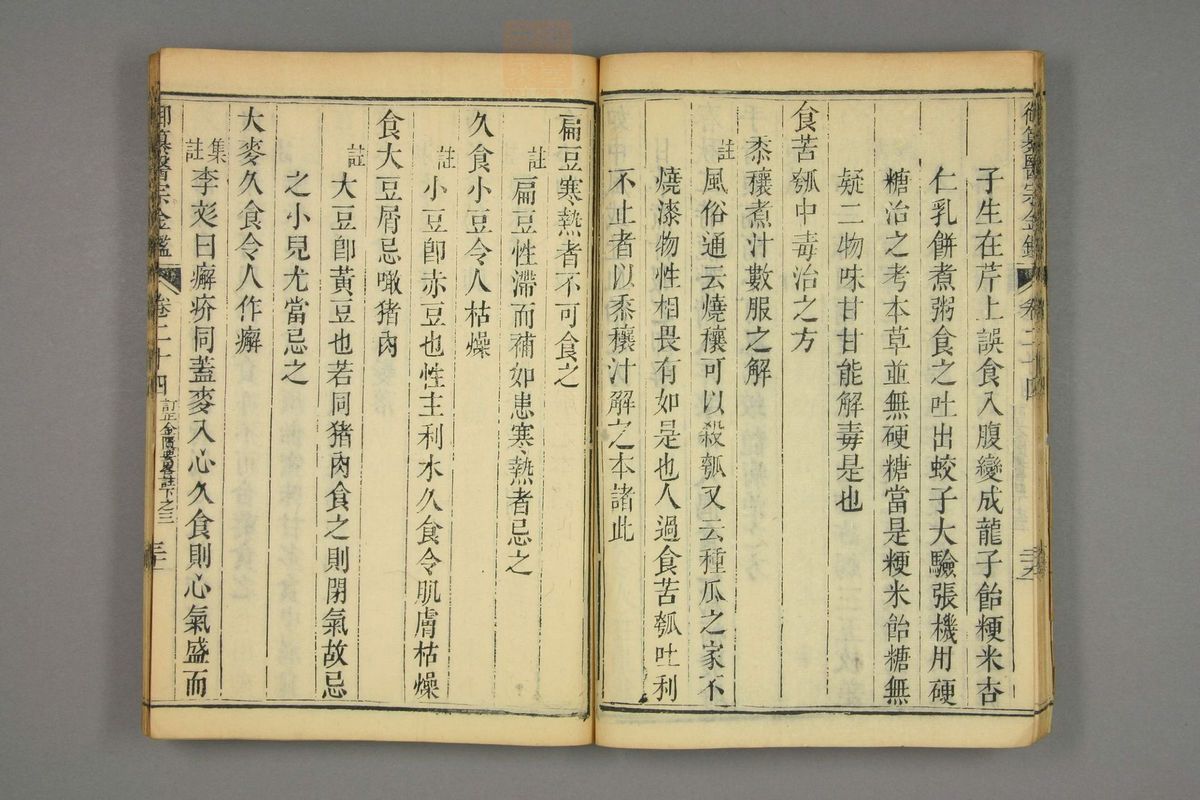 御纂醫宗金鑑 卷二十四
子生在芹上誤食入腹變成龍子飴粳米杏
仁乳餅煮粥食之吐出蛟子大驗張機用硬
糖治之考本草並無硬糖當是粳米飴糖無
疑二物味甘甘能解毒是也
食苦瓠中毒治之方
黍穰煮汁數服之解
註 風俗通云燒穰可以殺瓠又云種瓜之家不
燒漆物性相畏有如是也人過食苦瓠吐利
不止者以黍穰汁解之本諸此
扁豆寒熱者不可食之
註 扁豆性滯而補如患寒熱者忌之
久食小豆令人枯燥
註 小豆卽赤豆也性主利水久食令肌膚枯燥
食大豆屑忌噉猪肉
註 大豆卽黃豆也若同猪肉食之則閉氣故忌
之小兒尤當忌之
大麥久食令人作癬
集註 李彣曰癬疥同蓋麥入心久食則心氣盛而
御纂醫宗金鑑 卷二十四 訂正金匱要畧註下之三